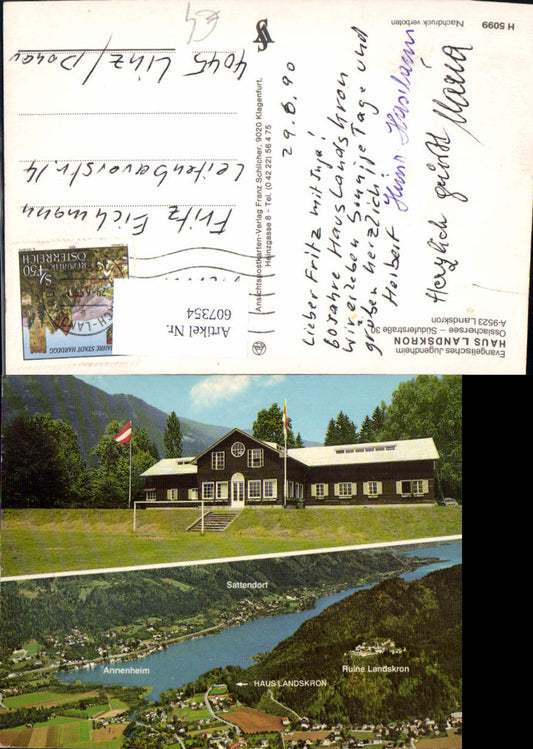 Evangelisches Jugendheim
HAUS LANDSKRON
Ossiachersee – Süduferstraße
A-9523 Landskron
29.8.90
Lieber Fritz mit Inja!
60 Jahre Haus Landskron
Wir erleben Sonnige Tage und
grüßen herzlichst
Heibert
Herzlich grüßt Maria
H 5099
Nachdruck verboten
Ansichtspostkarten-Verlag Franz Schilcher, 9020 Klagenfurt,
Heinzgasse 8 - Tel. (0 42 22) 56 4 75
REPUBLIK
ÖSTERREICH
S 4,50
JAHRE STADT HARDEGG
Artikel Nr.
607354
Fritz Eichmann
Leitenbauerstr. 14
4045 Linz/Donau
Sattendorf
Annenheim
Ruine Landskron
HAUS LANDSKRON